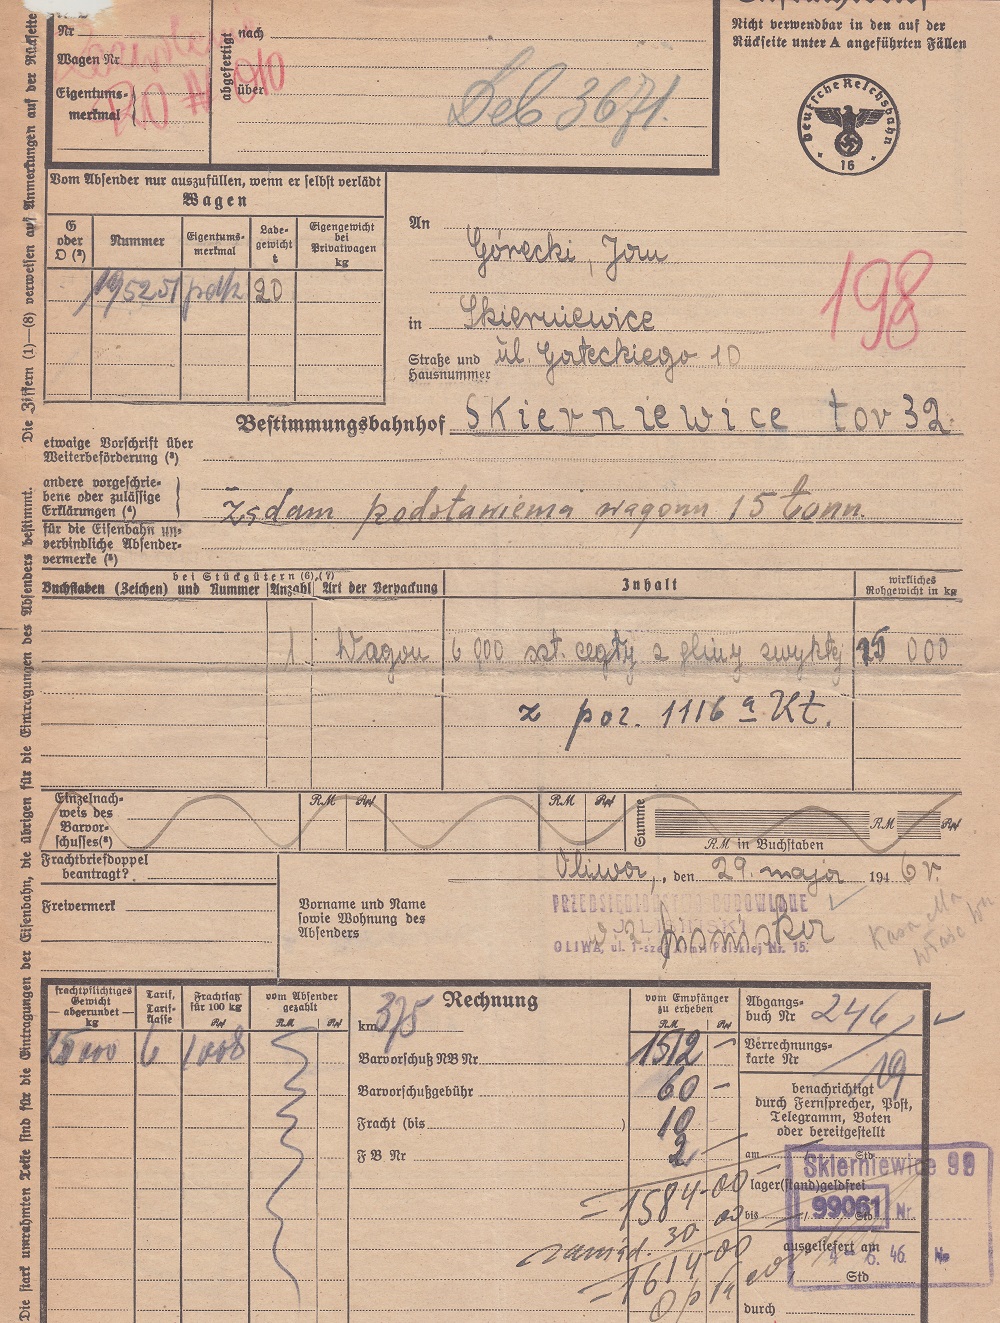 Nicht verwendbar in den auf der
Rückseite unter A angeführten Fällen
Nr
Wagen Nr
Eigentums-
merkmal
abgefertigt
nach
über
Deb 3671.
Deutsche Reichsbahn
16
Die Ziffern (1)—(8) verweisen auf Anmerkungen auf der Rückseite
Die stark umrahmten Teile sind für die Eintragungen der Eisenbahn, die übrigen für die Eintragungen des Absenders bestimmt.
Vom Absender nur auszufüllen, wenn er selbst verlädt
Wagen
G oder O (²)
Nummer
Eigentums-
merkmal
Lade-
gewicht
t
Eigengewicht
bei
Privatwagen
kg
20
An
Górecki, Jan
198
in Skierniewice
Straße und
Hausnummer
ul. Gałeckiego 10
Bestimmungsbahnhof Skierniewice tov 32
etwaige Vorschrift über
Weiterbeförderung (³)
andere vorgeschrie-
bene oder zulässige
Erklärungen (⁴)
Żądam podstawienia wagonu 15 tonn.
für die Eisenbahn un-
verbindliche Absender-
vermerke (⁵)
bei Stückgütern (6),(7)
Buchstaben (Zeichen) und Nummer
Anzahl
Art der Verpackung
Inhalt
wirkliches
Rohgewicht in kg
1 Wagon 6 000 szt. cegły z gliny zwykłej 15 000
z poz. 1116 a Kt.
Einzelnach-
weis des
Barvor-
schusses(⁸)
RM Rpf
RM Rpf
Summe
RM Rpf
RM in Buchstaben
Frachtbriefdoppel
beantragt?
Oliwa, den 29. maja 1946 r.
Freivermerk
Vorname und Name
sowie Wohnung des
Absenders
PRZEDSIĘBIORSTWO BUDOWLANE
OLIWA, ul. 1-szej Armii Polskiej Nr. 15.
frachtpflichtiges
Gewicht
abgerundet
kg
Tarif,
Tarif-
klasse
Frachtsatz
für 100 kg
Rpf
vom Absender
gezahlt
RM Rpf
km 375
Rechnung
vom Empfänger
zu erheben
RM Rpf
15 000 6 1008
Barvorschuß NB Nr 1512 —
Barvorschußgebühr 60 —
Fracht (bis ) 10
F B Nr 2
=1584-00
30 00
=1614-00
Abgangs-
buch Nr 246
Verrechnungs-
karte Nr 19
benachrichtigt
durch Fernsprecher, Post,
Telegramm, Boten
oder bereitgestellt
am Std
lager(stand)geldfrei
bis Std
ausgeliefert am
Std
durch
Skierniewice 99
99061 Nr.
4-6.46